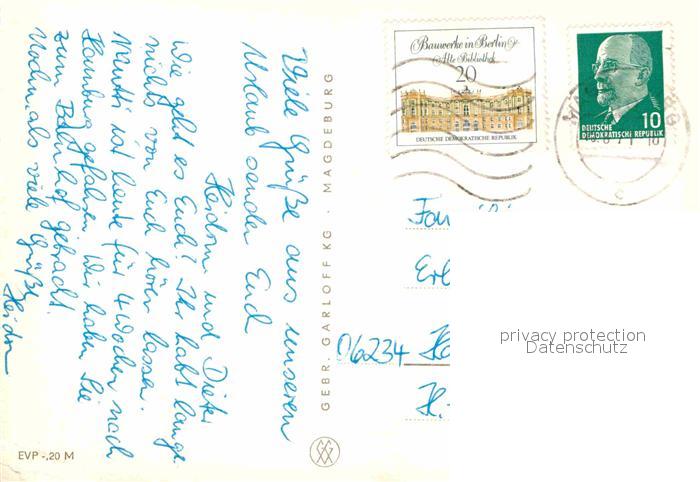 Viele Grüße aus unseren
Urlaub senden Euch
Heidrun und Dieter
Wie geht es Euch? Ihr habt lange
nichts von Euch hören lassen.
Mutti ist heute für 4 Wochen nach
Hamburg gefahren. Wir haben Sie
zum Bahnhof gebracht.
Nochmals viele Grüße
GEBR. GARLOFF KG · MAGDEBURG
EVP -,20 M
Bauwerke in Berlin
Alte Bibliothek
20
DEUTSCHE DEMOKRATISCHE REPUBLIK
10
DEUTSCHE
DEMOKRATISCHE REPUBLIK
06234
privacy protection
Datenschutz